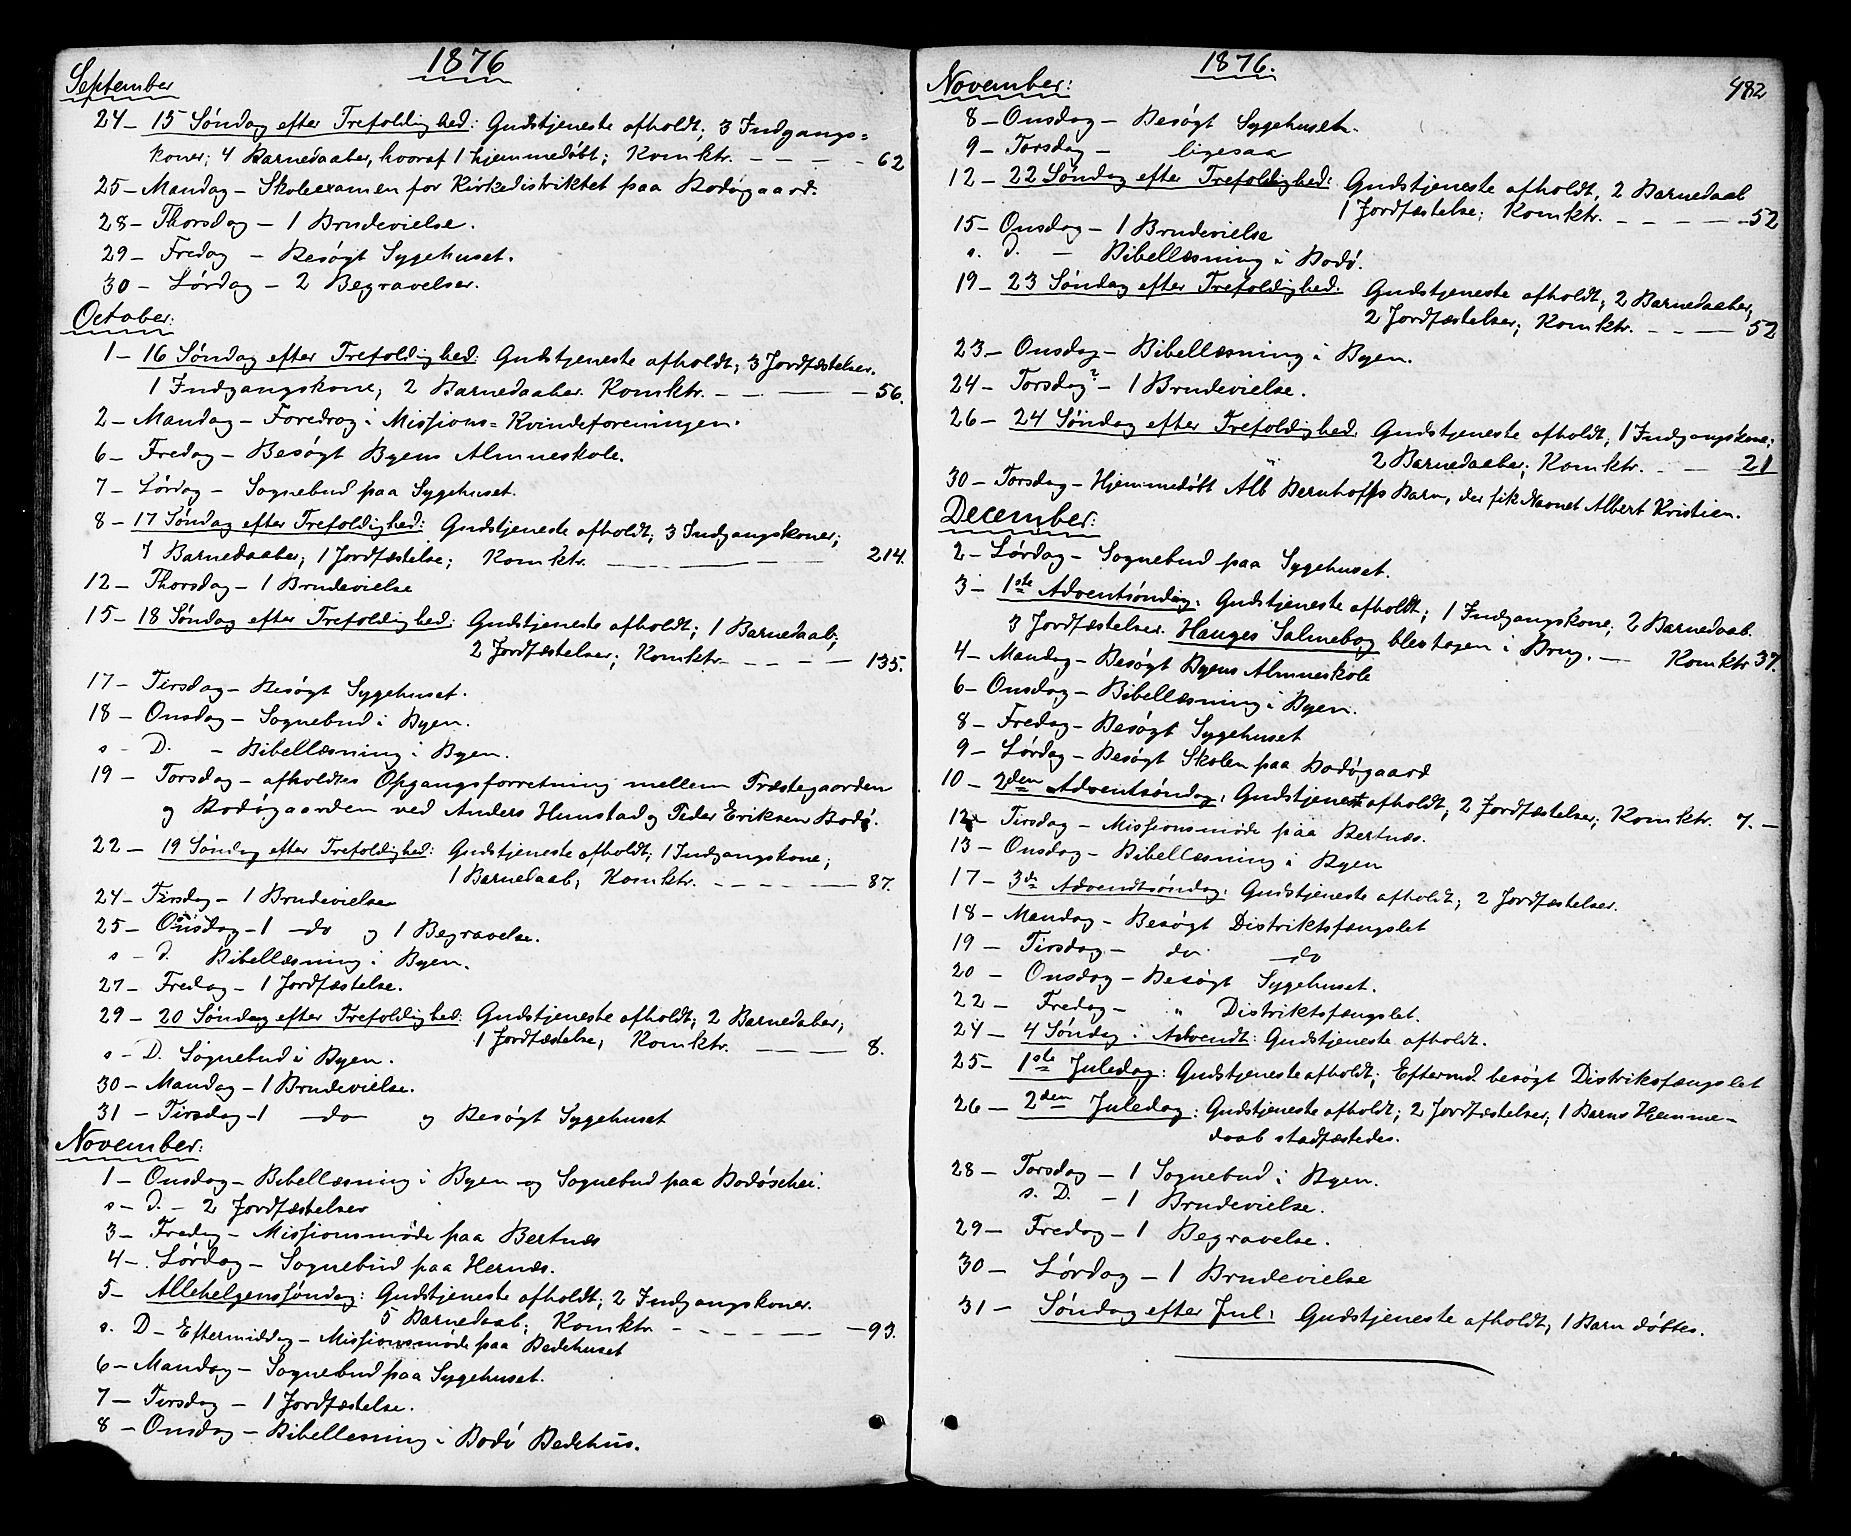 1876
September
24 – 15 Søndag efter Trefoldighed: Gudstjeneste afholdt; 3 Indgangs=
koner; 4 Barnedaaber, hvoraf 1 hjemmedøbt; Komktr. – – – – 62
25 – Mandag – Skoleexamen for Kirkedistriktet paa Bodøgaard.
28 – Thorsdag – 1 Brudevielse.
29 – Fredag – Besøgt Sygehuset.
30 – Lørdag – 2 Begravelser.
October:
1 – 16 Søndag efter Trefoldighed: Gudstjeneste afholdt; 3 Jordfæstelser.
1 Indgangskone; 2 Barnedaaber. Komktr. – – – – 56.
2 – Mandag – Foredrag i Missions=Kvindeforeningen.
6 – Fredag – Besøgt Byens Almueskole.
7 – Lørdag – Sognebud paa Sygehuset.
8 – 17 Søndag efter Trefoldighed: Gudstjeneste afholdt; 3 Indgangskoner;
4 Barnedaaber; 1 Jordfæstelse; Komktr. – – – – 214.
12 – Thorsdag – 1 Brudevielse
15 – 18 Søndag efter Trefoldighed: Gudstjeneste afholdt; 1 Barnedaab;
2 Jordfæstelser; Komktr – – – – 135.
17 – Tirsdag – Besøgt Sygehuset.
18 – Onsdag – Sognebud i Byen.
s – D. – Bibellæsning i Byen.
19 – Torsdag – afholdtes Opgangsforretning mellem Præstegaarden
og Bodøgaarden ved Anders Hunstad og Peder Eriksen Bodø.
22 – 19 Søndag efter Trefoldighed: Gudstjeneste afholdt; 1 Indgangskone;
1 Barnedaab; Komktr. – – – – 87.
24 – Tirsdag – 1 Brudevielse
25 – Onsdag – 1 do og 1 Begravelse.
s – D. Bibellæsning i Byen.
27 – Fredag – 1 Jordfæstelse.
29 – 20 Søndag efter Trefoldighed: Gudstjeneste afholdt; 2 Barnedaaber;
1 Jordfæstelse; Komktr. – – – – 8.
s – D. Sognebud i Byen.
30 – Mandag – 1 Brudevielse.
31 – Tirsdag – 1 do og Besøgt Sygehuset
November:
1 – Onsdag – Bibellæsning i Byen og Sognebud paa Bodøschei.
s – D. – 2 Jordfæstelser
3 – Fredag – Missionsmøde paa Bertnæs
4 – Lørdag – Sognebud paa Hernæs.
5 – Allehelgenssøndag: Gudstjeneste afholdt; 2 Indgangskoner.
5 Barnedaab; Komktr. – – – – 93.
s. D – Eftermiddag – Missionsmøde paa Bedehuset
6 – Mandag – Sognebud paa Sygehuset.
7 – Tirsdag – 1 Jordfæstelse.
8 – Onsdag – Bibellæsning i Bodø Bedehus.
1876.
482
November:
8 – Onsdag – Besøgt Sygehuset.
9 – Torsdag – ligesaa
12 – 22 Søndag efter Trefoldighed: Gudstjeneste afholdt, 2 Barnedaab
1 Jordfæstelse; Komktr. – – – – 52
15 – Onsdag – 1 Brudevielse
s. D. – Bibellæsning i Bodø.
19 – 23 Søndag efter Trefoldighed: Gudstjeneste afholdt; 2 Barnedaaber,
2 Jordfæstelser; Komktr. – – – 52
23 – Onsdag – Bibellæsning i Byen.
24 – Torsdag? – 1 Brudevielse.
26 – 24 Søndag efter Trefoldighed: Gudstjeneste afholdt; 1 Indgangskone;
2 Barnedaaber; Komktr. – – 21
30 – Torsdag – Hjemmedøbt Alb Bernhoffs Barn, der fik Navnet Albert Kristien.
December:
2 – Lørdag – Sognebud paa Sygehuset.
3 – 1ste Adventsøndag: Gudstjeneste afholdt; 1 Indgangskone; 2 Barnedaab.
3 Jordfæstelser. Hauges Salmebog blev tagen i Brug. – Komktr 37.
4 – Mandag – Besøgt Byens Almueskole
6 – Onsdag – Bibellæsning i Byen.
8 – Fredag – Besøgt Sygehuset
9 – Lørdag – Besøgt Skolen paa Bodøgaard
10 – 2den Adventsøndag: Gudstjeneste afholdt; 2 Jordfæstelser; Komktr. 7. –
12 – Tirsdag – Missionsmøde paa Bertnæs.
13 – Onsdag – Bibellæsning i Byen
17 – 3de Advendtsøndag: Gudstjeneste afholdt; 2 Jordfæstelser.
18 – Mandag – Besøgt Distriktsfængslet
19 – Tirsdag – do do
20 – Onsdag – Besøgt Sygehuset.
22 – Fredag – " Distriktsfængslet.
24 – 4 Søndag i Advendt: Gudstjeneste afholdt.
25 – 1ste Juledag: Gudstjeneste afholdt; Eftermd. besøgt Distriksfængslet
26 – 2den Juledag: Gudstjeneste afholdt; 2 Jordfæstelser; 1 Barns Hjemme–
daab stadfæstedes.
28 – Torsdag – 1 Sognebud i Byen.
s. D. – 1 Brudevielse.
29 – Fredag – 1 Begravelse.
30 – Lørdag – 1 Brudevielse
31 – Søndag efter Jul: Gudstjeneste afholdt; 1 Barn døbtes.